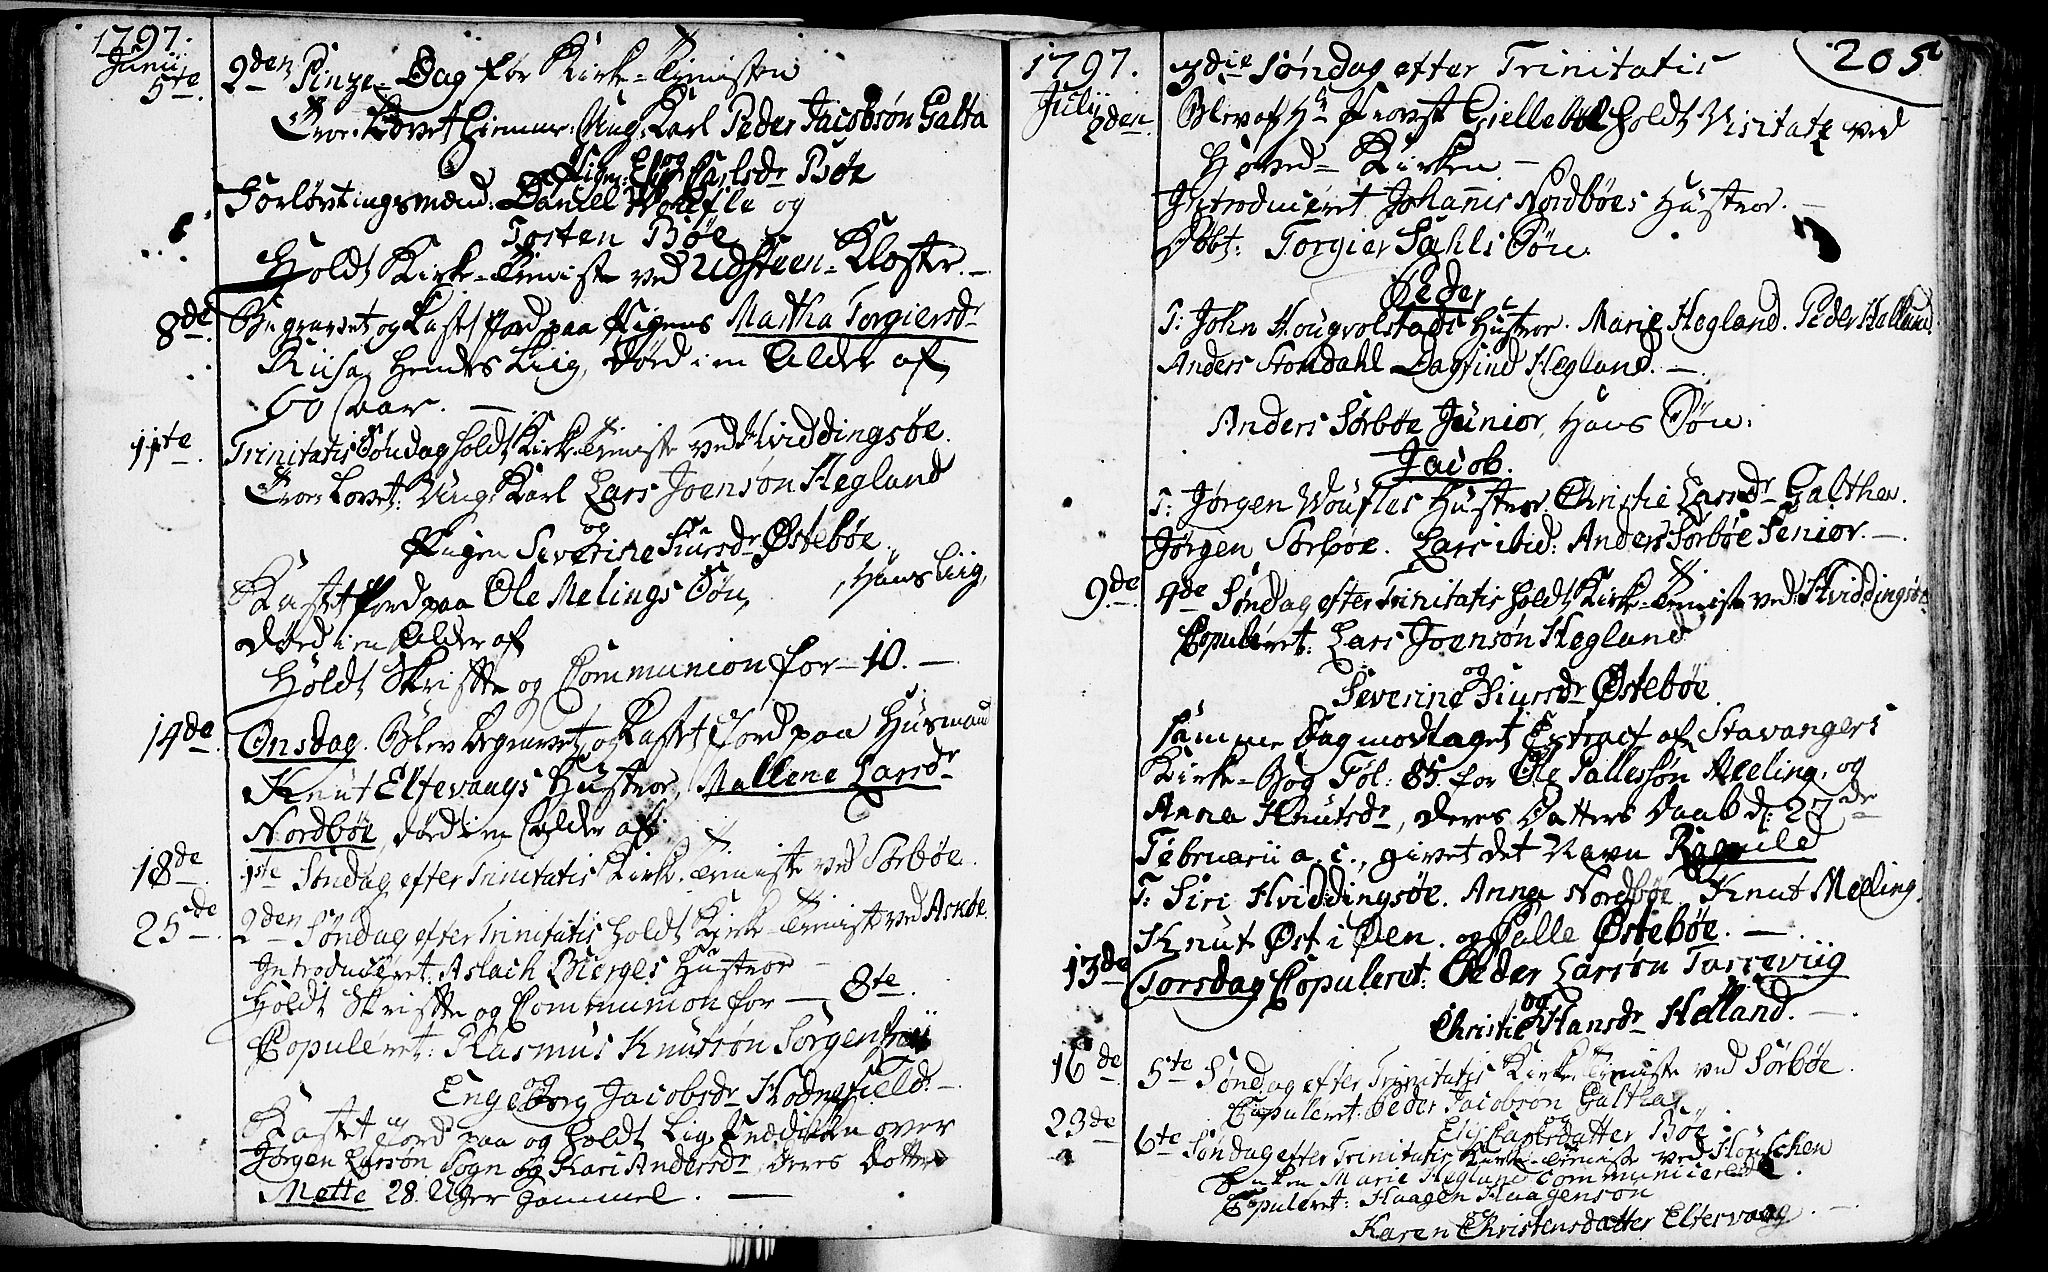 1797.
Junii
5te
2den Pinze-Dag for Kirke-Tieniste
Troe-Lovet Ung-Karl Peder Jacobsøn Galta
og
Pigen: Elj: Carlsdr Bøe
Forlovtingsmænd: Daniel Woufle og
Tosten Bøe
Holdt Kirke-Tieniste ved Udsteen-Kloster.
8de
Begravet og Kast Jord paa Pigens Martha Torgiersdr
Huusa, hendes Liig, død i en Alder af
60 Aar.
11te
Trinitatis Søndag holdt Kirke-Tieniste ved Hviddingsøe.
Troe-Lovet: Ung-Karl Lars Joensøn Hegland
og
Pigen Severine Siursdr Østebøe
Kastet Jord paa Ole Melings Søn, hans Liig,
død i en Alder af
Holdt Skrifte og Communion for 10.
14de
Onsdag. Blev begravet og Kastet Jord paa Husmand
Knut Eltevaags Hustroe, Mallene Larsdr
Nordbøe, død i en Alder af
18de
1ste Søndag efter Trinitatis Kirke-Tieniste ved Sørbøe.
25de
2den Søndag efter Trinitatis holdt Kirke-Tieniste ved Askøe.
Introduceret: Aslach Bierges Hustroe
Holdt Skrifte og Communion for 8te.
Copuleret: Rasmus Knutsøn Sørgenfrii
og
Engeborg Jacobsdr Hodnefield.
Kastet Jord paa og holdt Lig-Prædiken over
Jørgen Larsøn Sogn og Kari Andersdr, deres Datter
Mette 28. Uger gammel.
205
1797.
Julii
2den
3die Søndag efter Trinitatis
Blev af Hr Provst Giellebøl holdt Visitatz ved
Hoved-Kirken
Introduceret Johannis Nordbøes Hustroe.
Døbt: Torgier Sahls Søn
Peder
T: John Hougvolstads Hustroe. Marie Hegland. Peder Helland.
Anders Stondahl Dagfind Hegland.
Anders Sørbøe Junior, Hans Søn:
Jacob.
T: Jørgen Woufles Hustroe. Christie Larsdr Galthen.
Jørgen Sørbøe. Lars ibid: Anders Sørbøe Senior.
9de
4de Søndag efter Trinitatis holdt Kirke-Tieniste ved Hviddingsøe
Copuleret: Lars Joensøn Hegland
og
Severine Siursdr Østebøe.
Samme Dag modtaget Extract af Stavangers
Kirke-Bog Fol: 85. for Ole Pallessøn Meeling, og
Anna Knutsdr, deres Datters Daab d: 27de
Februarii a. c., givet det Navn Ragnild
T: Siri Hviddingsøe. Anna Nordbøe Knut Meeling.
Knut Øst i Øen. og Palle Østebøe.
13de
Torsdag Copuleret: Peder Larsøn Torreviig
og
Christi Hansdr Helland.
16de
5te Søndag efter Trinitatis Kirke-Tieniste ved Sørbøe.
Copuleret: Peder Jacobsøn Galtha
og
Elj Carlsdatter Bøe
23de
6te Søndag efter Trinitatis Kirke-Tieniste ved
Enken Marie Hegland Communicerede.
Copuleret: Haagen Haagensøn
og
Karen Christensdatter Eltervaag